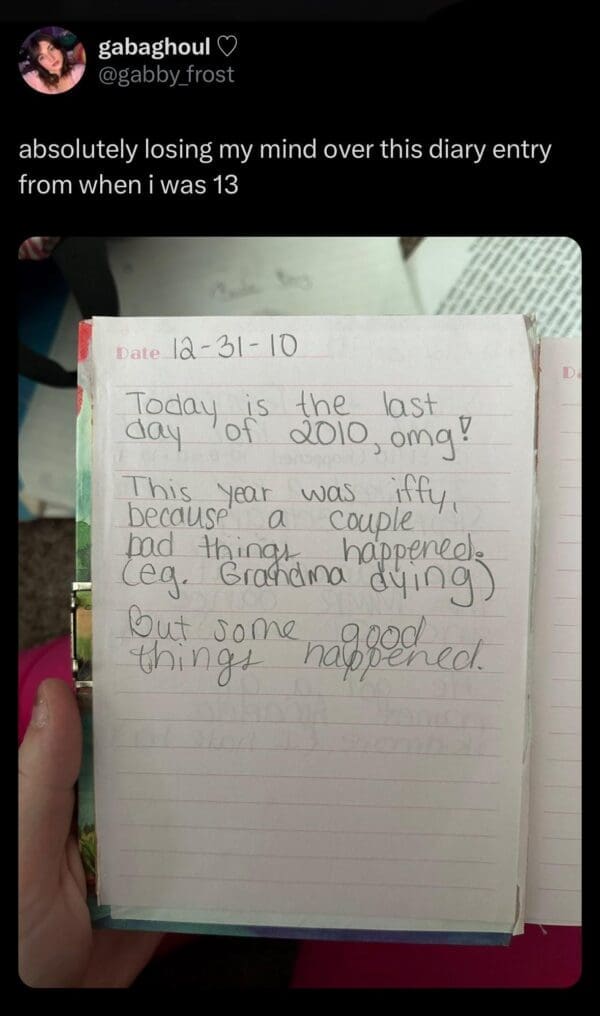 gabaghoul ♡
@gabby_frost
absolutely losing my mind over this diary entry
from when i was 13
Date 12-31-10
Today is the last
day of 2010, omg!
This year was iffy,
because a couple
bad things happened.
(eg. Grandma dying)
But some good
things happened.